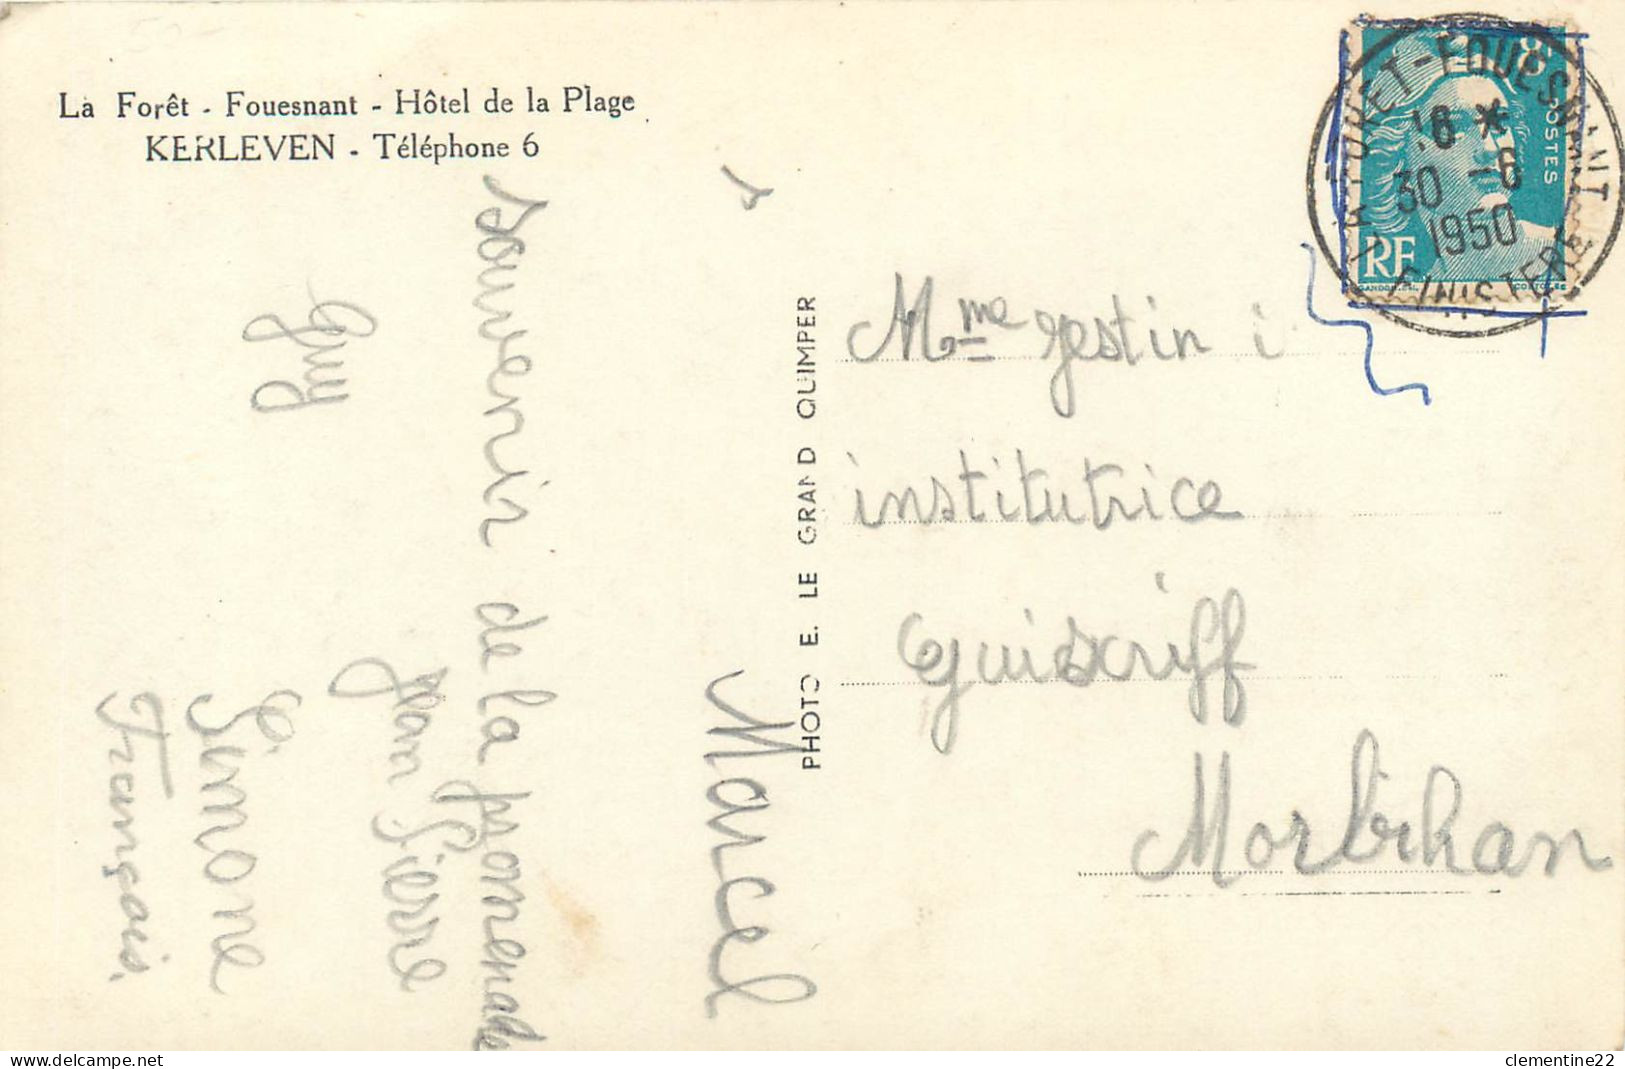 La Forêt - Fouesnant - Hôtel de la Plage
KERLEVEN - Téléphone 6
souvenir de la promenade
Marcel
Guy
Jean Pierre
Simone
François.
PHOTO E. LE GRAND QUIMPER
LA FORET-FOUESNANT
18 *
30 -6
1950
FINISTERE
8F
POSTES
RF
GANDON
Mme Jestin
institutrice
Guiscriff
Morbihan
clementine22